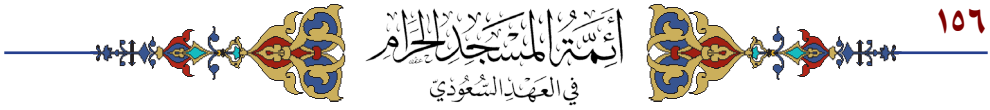 ١٥٦
أَئِمَّةُ المَسْجِدِ الحَرَامِ
فِي العَهْدِ السُّعُودِيِّ